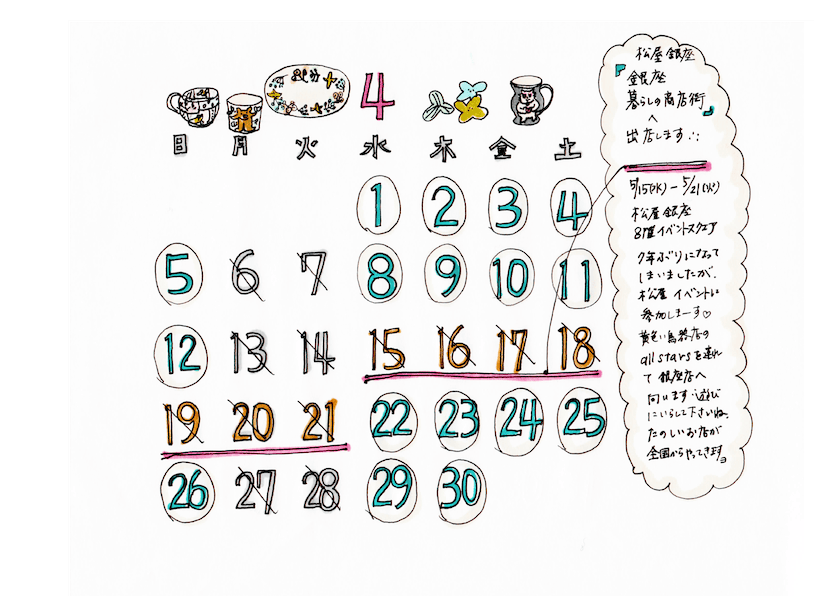 4
日 月 火 水 木 金 土
1 2 3 4
5 6 7 8 9 10 11
12 13 14 15 16 17 18
19 20 21 22 23 24 25
26 27 28 29 30
松屋銀座
『銀座
暮らしの商店街』
へ
出店します
5/15(水)-5/21(火)
松屋銀座
8階イベントスクエア
7年ぶりになって
しまいましたが、
松屋イベントに
参加しまーす♡
黄色い鳥器店の
all starsを連れ
て 銀座店へ
向います
遊び
にいらして下さいね。
たのしいお店が
全国からやってきます